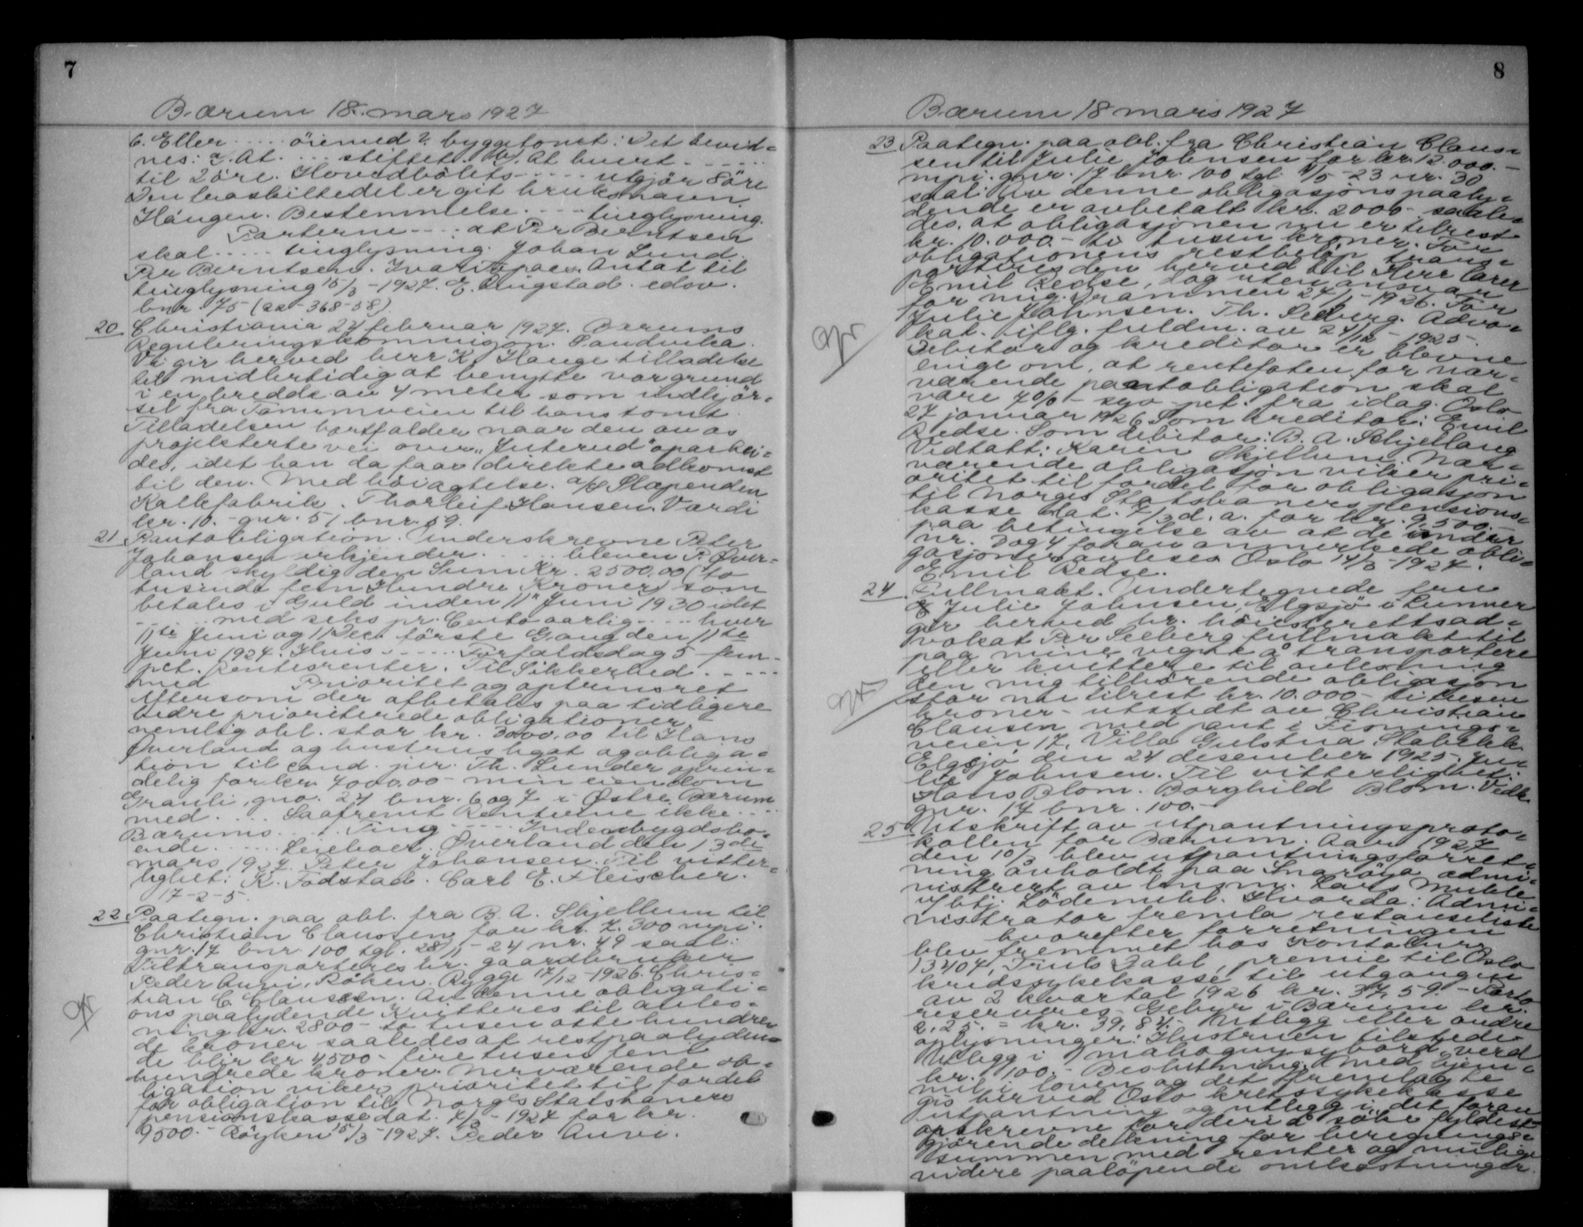 7
Bærum 18. mars 1927
6. Eller .... öiemed? byggetomt: Det bevid=
nes: 7. At ... stiftet. 8/ At hvert .....
til 20 öre. Hovedbölets .... utgjör 8 öre
Den fraskiltedel er git bruksnavn
Haugen. Bestemmelse .... tinglysning.
Parterne .... at Per Berntsen
skal .... tinglysning. Johan Lund
Per Berntsen. Ivar Antat til
tinglysning 15/3-1927. E. Ringstad. edsv.
bnr. 75 (22-368-58).
20 Christiania 24 februar 1927. Bærums
Reguleringskommisjon. Sandvika.
Vi gir herved herr K. Hauge tilladelse
til midlertidig at benytte vor grund
i en bredde av 4 meter som indkjör=
sel fra Tanumveien til hans tomt.
Tilladelsen bortfalder naar den av os
projekterte vei over "Juterud" oparbei=
des, idet han da faar direkte adkomst
til den. Med höiagtelse. A/S Slependen
Kalkfabrik. Thorleif Hansen. Værdi
kr. 10.- gnr. 51 bnr. 59.
21 Pantobligation. Underskrevne Peter
Johansen erkjender .... bleven P. Över=
land skyldig den Sum Kr. 2500,00 (to
tusinde fem Hundre Kroner) som
betales i Guld inden 11te Juni 1930 idet
.... med seks pr. Cento aarlig .... hver
11te Juni og 11 Dec. förste Gang den 11te
Juni 1927. Hvis .... Forfaldsdag 5 fem
pct. Rentesrenter. Til Sikkerhed .....
med Prioritet og oprykningsret
eftersom der afbetales paa tidligere
bedre prioriterede obligationer
nemlig obl. stor kr. 3000,00 til Hans
Överland og hustrus ligat og obliga=
tion til cand. jur. Th. Lunder oprin=
delig for kr. 4000,00 - min eiendom
Granli, gno. 24 bnr. 6 og 7 i Östre Bærum
med .... Saafremt Renterne ikke ....
Bærums .... Ting .... Indenbygdsbo=
ende .... Överland den 13 de
mars 1927. Peter Johansen. Til vitter=
lighet: K. Fodstad. Carl E. Fleischer.
17-2-5.
22 Paategn. paa obl. fra B. A. Skjellum til
Christian Claussen for kr. 7.300 mpi.
gnr. 17 bnr. 100 tgl. 28/11-24 nr. 49 saal:
Tiltransporteres hr. gaardbruker
Peder Auvi, Röken. Rygge 17/12-1926. Chris=
tian C. Claussen. Av denne obligati=
ons paalydende Kvitteres til avles=
ning kr. 2800- to tusen otte hundrer
de kroner saaledes at restpaalyden=
de blir kr. 4500- fire tusen fem
hundrede kroner. Nerværende ob=
ligation viker prioritet til fordel
for obligation til Norges Statsbaners
pensionskasse dat. 7/3-1927 for kr.
9500.- Röyken 15/3-1927. Peder Auvi.
8
Bærum 18 mars 1927
23 Paategn. paa obl. fra Christian Claus=
sen til Julie Johnsen for kr. 12.000.-
mpi. gnr. 17 bnr. 100 tgl. 4/5-23 nr. 30
saal: Av denne obligasjons paaly=
dende er avbetalt kr. 2000.- saale=
des at obligasjonen nu er tilrest
kr. 10.000.- ti tusen kroner. For
obligationens restbelöp trans=
porteres den herved til Herr lærer
Emil Bedse, dog uten ansvar
for mig. Drammen 27/1-1926. For
Julie Johnsen. Th. Seeberg. Advo=
kat. iflg. fuldm. av 24/12-1925.
Debitor og kreditor er blevne
enige om, at rentefoten for nær=
værende pantobligation skal
være 7% - syv - pct. fra idag. Oslo
27 januar 1926. Som kreditor: Emil
Bedse. Som debitor: B. A. Skjellum
Vedtatt: Karen Skjellum. Nær=
værende obligasjon viker pri=
oritet til fordel for obligasjon
til Norges Statsbaners pensions=
kasse dat. 7/3 d. a. for kr. 9.500.-
paa betingelse av at de under
nr. 3 og 4 foran anmerkede obli=
gasjoner avlöses. Oslo 14/3-1927.
Emil Bedse.
24 Fullmakt. Undertegnede frue
Julie Johnsen, Elgsjö i Lunner
gir herved hr. höiesterettsad=
vokat Per Seeberg fullmakt til
paa mine vegne å transportere
eller kvittere til avlesning
den mig tilhörende obligasjon
stor nu tilrest kr. 10.000 - ti tusen
kroner - utstedt av Christian
Clausen med pant i
veien 17, Villa Gulstua, Stabekk
Elgsjö den 24 desember 1925. Ju=
lie Johnsen. Til vitterlighet:
Hans Blom. Borghild Blom. Vedk
gnr. 17 bnr. 100.-
25 Utskrift av utpantningsproto=
kollen for Bærum. Aar 1927
den 10/3 blev utpantningsforret=
ning avholdt paa Snaröya admi=
nistrert av lensm. Lars Muhle
Vbtj. Lödemkl. Hvorda: Admi=
nistrator fremla restanseliste
hvorefter forretningen
blev fremmet hos Kontohaver
13404, Truls Dahl, premie til Oslo
kredssykekasse til utgangen
av 2 kvartal 1926 kr. 37,59. - Porto
reserveres. Gebyr i Bærum kr.
2,25. = kr. 39,84. Utlegg eller andre
oplysninger: Hustruen tilstede
Utlegg i 1 mahognysybord verd
kr. 100.- Beslutning: Med hjem=
mel i loven og det fremlagte
gis herved Oslo kretssykekasse
utpantning og utlegg i det foran
opskrevne for deri å söke fyldest=
gjörende dekning for beregnings=
summen med renter og mulige
videre paalöpende omkostninger.